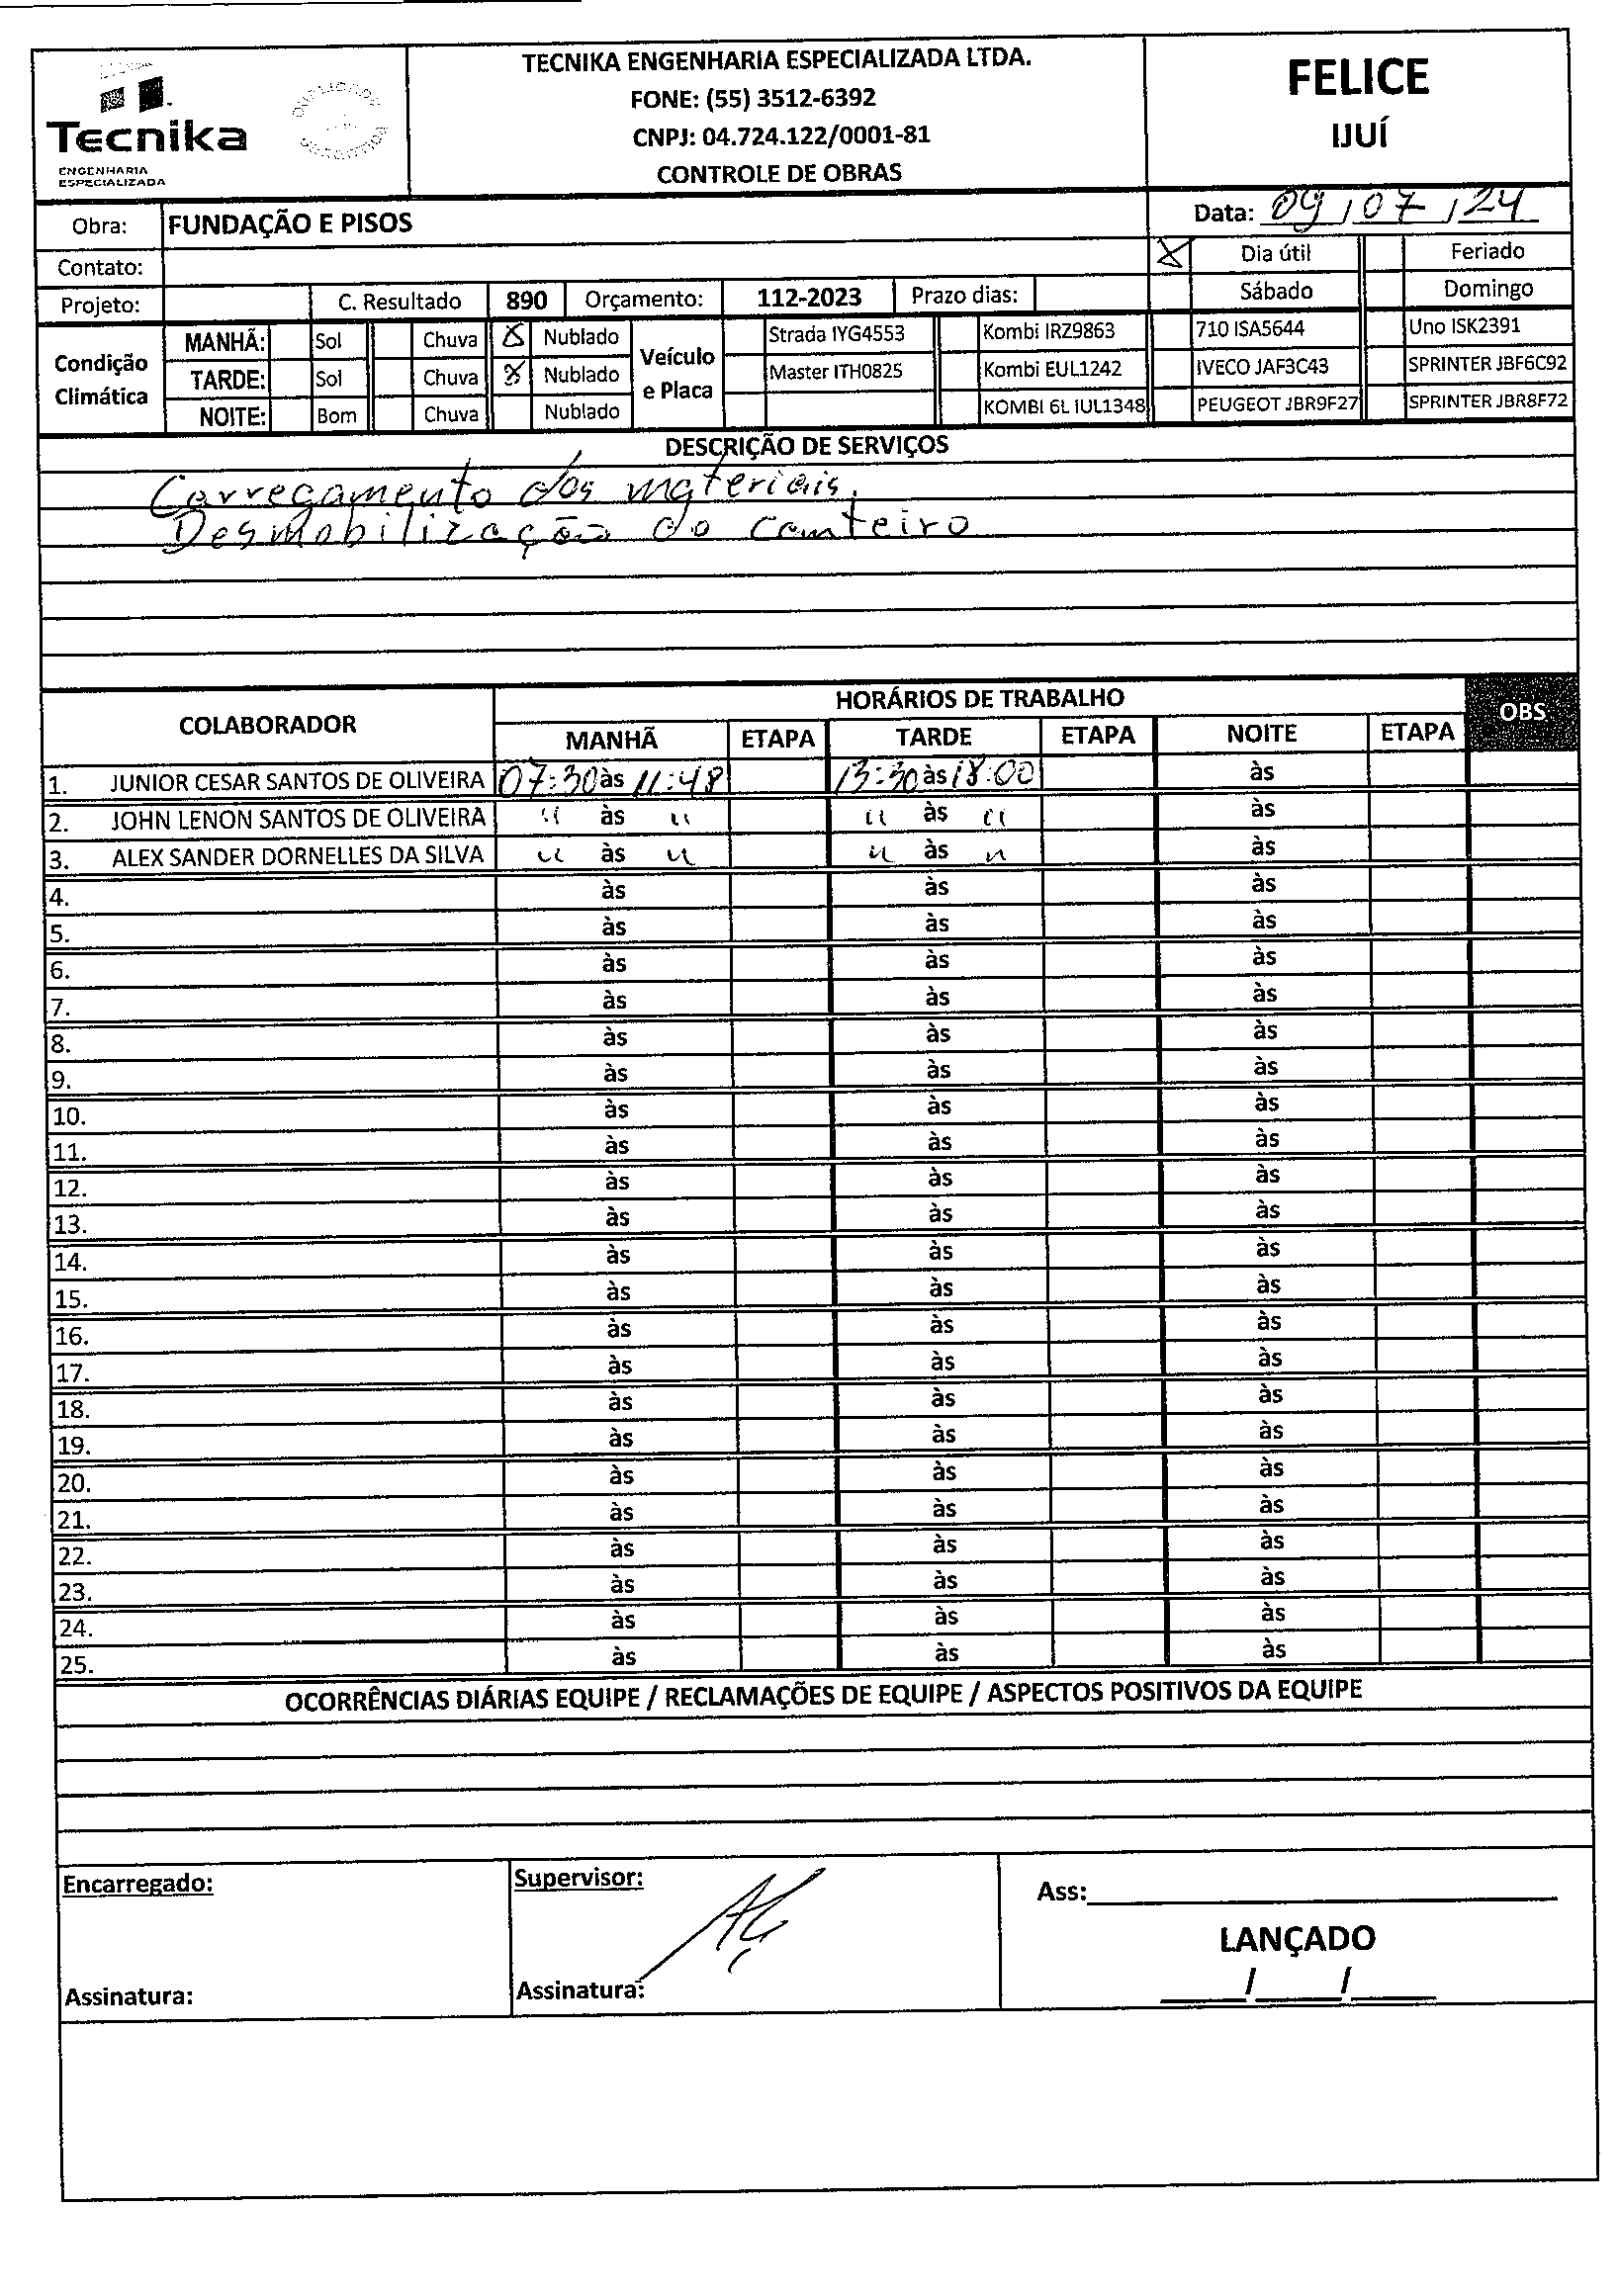 TECNIKA ENGENHARIA ESPECIALIZADA LTDA.
FONE: (55) 3512-6392
CNPJ: 04.724.122/0001-81
CONTROLE DE OBRAS
Tecnika
ENGENHARIA
ESPECIALIZADA
FELICE
IJUÍ
Obra: FUNDAÇÃO E PISOS
Data: 09/07/24
Contato:
Dia útil Feriado
Projeto: C. Resultado 890 Orçamento: 112-2023 Prazo dias: Sábado Domingo
Condição Climática
MANHÃ: Sol Chuva X Nublado
TARDE: Sol Chuva X Nublado
NOITE: Bom Chuva Nublado
Veículo e Placa
Strada IYG4553 Kombi IRZ9863 710 ISA5644 Uno ISK2391
Master ITH0825 Kombi EUL1242 IVECO JAF3C43 SPRINTER JBF6C92
KOMBI 6L IUL1348 PEUGEOT JBR9F27 SPRINTER JBR8F72
DESCRIÇÃO DE SERVIÇOS
Carregamento dos materiais.
Desmobilização do canteiro
COLABORADOR HORÁRIOS DE TRABALHO OBS
MANHÃ ETAPA TARDE ETAPA NOITE ETAPA
1. JUNIOR CESAR SANTOS DE OLIVEIRA 07:30 às 11:48 13:30 às 18:00 às
2. JOHN LENON SANTOS DE OLIVEIRA " às " " às " às
3. ALEX SANDER DORNELLES DA SILVA " às " " às " às
4. às às às
5. às às às
6. às às às
7. às às às
8. às às às
9. às às às
10. às às às
11. às às às
12. às às às
13. às às às
14. às às às
15. às às às
16. às às às
17. às às às
18. às às às
19. às às às
20. às às às
21. às às às
22. às às às
23. às às às
24. às às às
25. às às às
OCORRÊNCIAS DIÁRIAS EQUIPE / RECLAMAÇÕES DE EQUIPE / ASPECTOS POSITIVOS DA EQUIPE
Encarregado:
Assinatura:
Supervisor:
Assinatura:
Ass:
LANÇADO
/ /